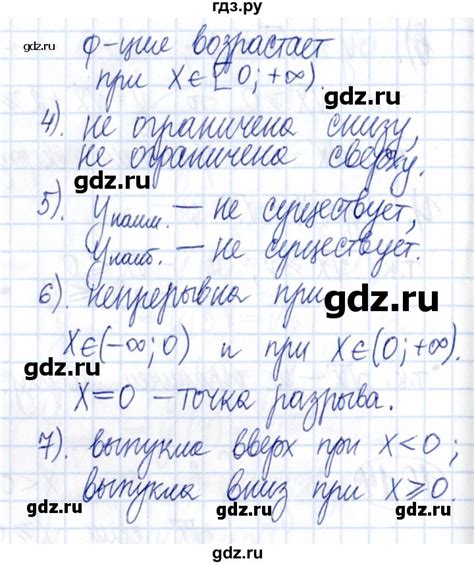 гдз.ру
ф-ция возрастает
при x∈[0;+∞).
gdz.ru
gdz.ru
4). не ограничена снизу,
не ограничена сверху.
gdz.ru
5). yнаим. — не существует,
yнаиб. — не существует.
6). непрерывна при
gdz.ru
x∈(-∞;0) и при x∈(0;+∞).
gdz.ru
x=0 — точка разрыва.
gdz.ru
7). выпукла вверх при x<0;
выпукла вниз при x⩾0.
gdz.ru
gdz.ru
gdz.ru